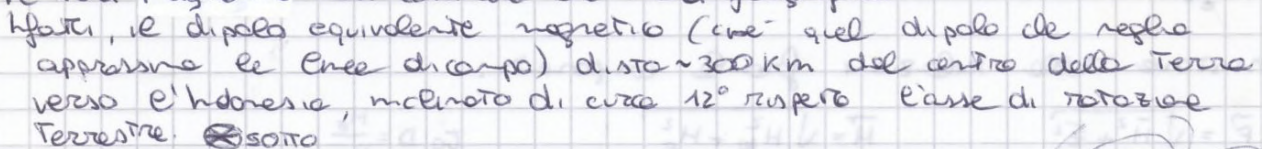 Infatti, il dipolo equivalente magnetico (cioè quel dipolo che meglio
approssima le linee di campo) dista ~300 Km dal centro della Terra
verso l'Indonesia, inclinato di circa 12° rispetto l'asse di rotazione
Terrestre. SOTTO